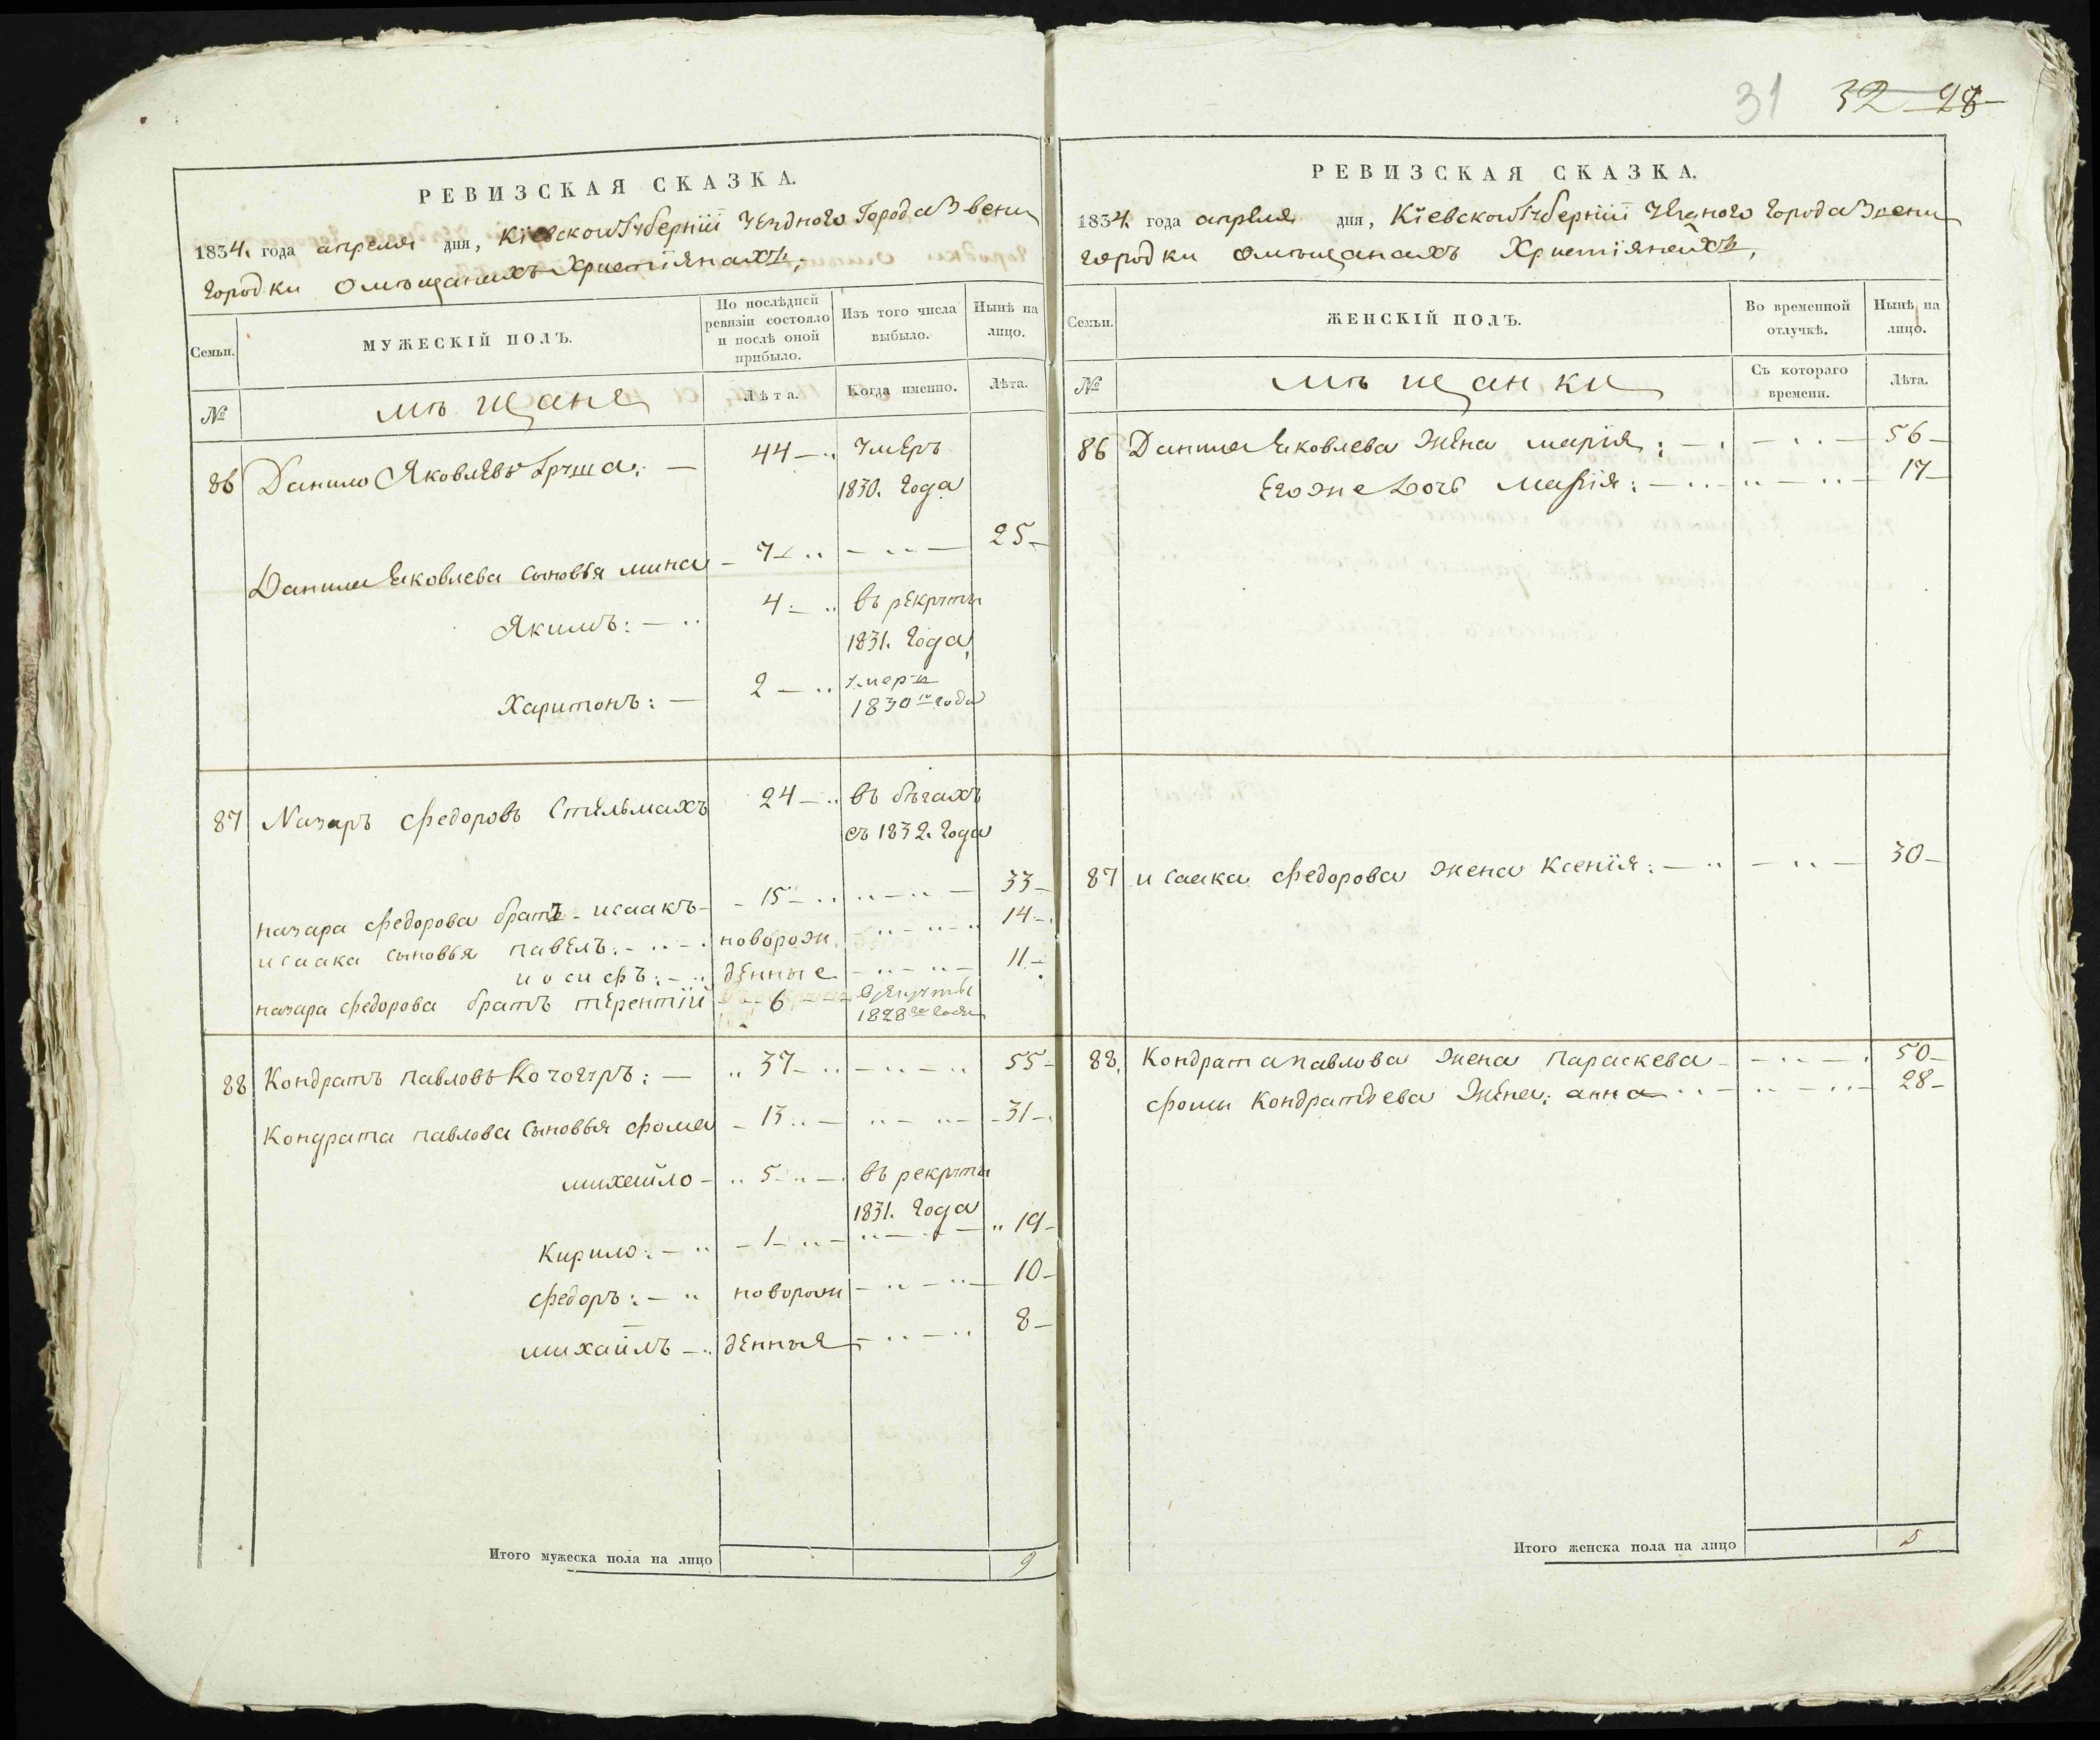 31 32 28
РЕВИЗСКАЯ СКАЗКА.
1834. года апреля дня, Кіевской Губерніи Уезднаго Города Звени
городки О мѣщанахъ Христіянахъ,
Семьи.
МУЖЕСКІЙ ПОЛЪ.
По послѣдней ревизіи состояло и послѣ оной прибыло.
Изъ того числа выбыло.
Нынѣ на лицо.
№
мѣщане
Лѣта.
Когда именно.
Лѣта.
86 Данило Яковлевъ Груша: 44 умеръ
1830. Года
Данила Яковлева сыновья мина 7 25
Якимъ: 4 въ рекруты
1831. Года
Харитонъ: 2 умеръ
1830го года
87 Назаръ Федоровъ Стельмахъ 24 въ бѣгахъ
съ 1832. Года
назара Федорова братъ исаакъ 15 33
исаака сыновья павелъ: новорож 14
иосифъ: денные 11
назара Федорова братъ терентій 6 в рекруты
1828го года
88 Кондратъ павловъ Кочогуръ: 37 55
Кондрата павлова сыновья фома 13 31
михайло 5 въ рекруты
1831. Года
Кирило: 1 19
федоръ: новорож 10
михаилъ денныя 8
Итого мужеска пола на лицо 9
РЕВИЗСКАЯ СКАЗКА.
1834. года апреля дня, Кіевской Губерніи Уезднаго Города Звени
городки О мѣщанахъ Христіянахъ,
Семьи.
ЖЕНСКІЙ ПОЛЪ.
Во временной отлучкѣ.
Нынѣ на лицо.
№
мѣщанки
Съ котораго времени.
Лѣта.
86 Данила Яковлева жена марія: 56
Его же дочь марія: 17
87 исаака Федорова жена Ксенія: 30
88. Кондрата павлова жена параскева 50
фомы Кондратьева жена: анна 28
Итого женска пола на лицо 5